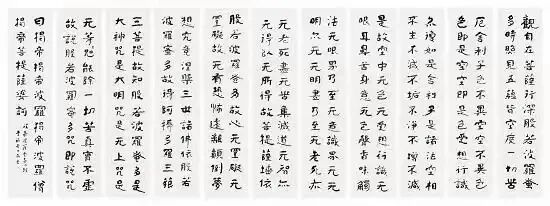 觀自在菩薩行深般若波羅蜜
多時照見五蘊皆空度一切苦
厄舍利子色不異空空不異色
色即是空空即是色受想行識
亦復如是舍利子是諸法空相
不生不滅不垢不淨不增不減
是故空中无色无受想行識无
眼耳鼻舌身意无色聲香味觸
法无眼界乃至无意識界无无
明亦无无明盡乃至无老死亦
无老死盡无苦集滅道无智亦
无得以无所得故菩提薩埵依
般若波羅蜜多故心无罣礙无
罣礙故无有恐怖遠離顛倒夢
想究竟涅槃三世諸佛依般若
波羅蜜多故得阿耨多羅三藐
三菩提故知般若波羅蜜多是
大神咒是大明咒是无上咒是
无等等咒能除一切苦真實不虛
故說般若波羅蜜多咒即說咒
曰揭帝揭帝波羅揭帝波羅僧
揭帝菩提薩婆訶